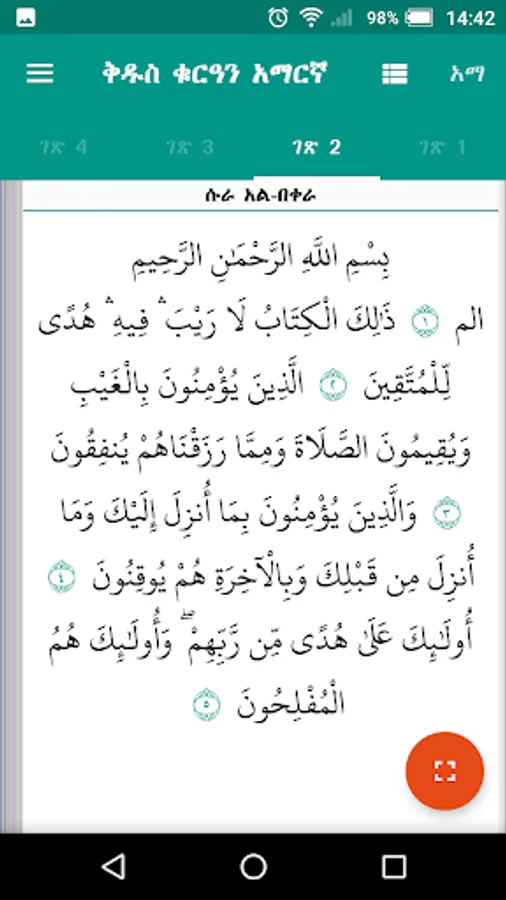 98% 14:42
ቅዱስ ቁርዓን አማርኛ አማ
ገጽ 4 ገጽ 3 ገጽ 2 ገጽ 1
ሱራ አል-በቀራ
بِسْمِ اللَّهِ الرَّحْمَٰنِ الرَّحِيمِ
الم ١ ذَٰلِكَ الْكِتَابُ لَا رَيْبَ ۛ فِيهِ ۛ هُدًى
لِّلْمُتَّقِينَ ٢ الَّذِينَ يُؤْمِنُونَ بِالْغَيْبِ
وَيُقِيمُونَ الصَّلَاةَ وَمِمَّا رَزَقْنَاهُمْ يُنفِقُونَ
٣ وَالَّذِينَ يُؤْمِنُونَ بِمَا أُنزِلَ إِلَيْكَ وَمَا
أُنزِلَ مِن قَبْلِكَ وَبِالْآخِرَةِ هُمْ يُوقِنُونَ ٤
أُولَٰئِكَ عَلَىٰ هُدًى مِّن رَّبِّهِمْ ۖ وَأُولَٰئِكَ هُمُ
الْمُفْلِحُونَ ٥